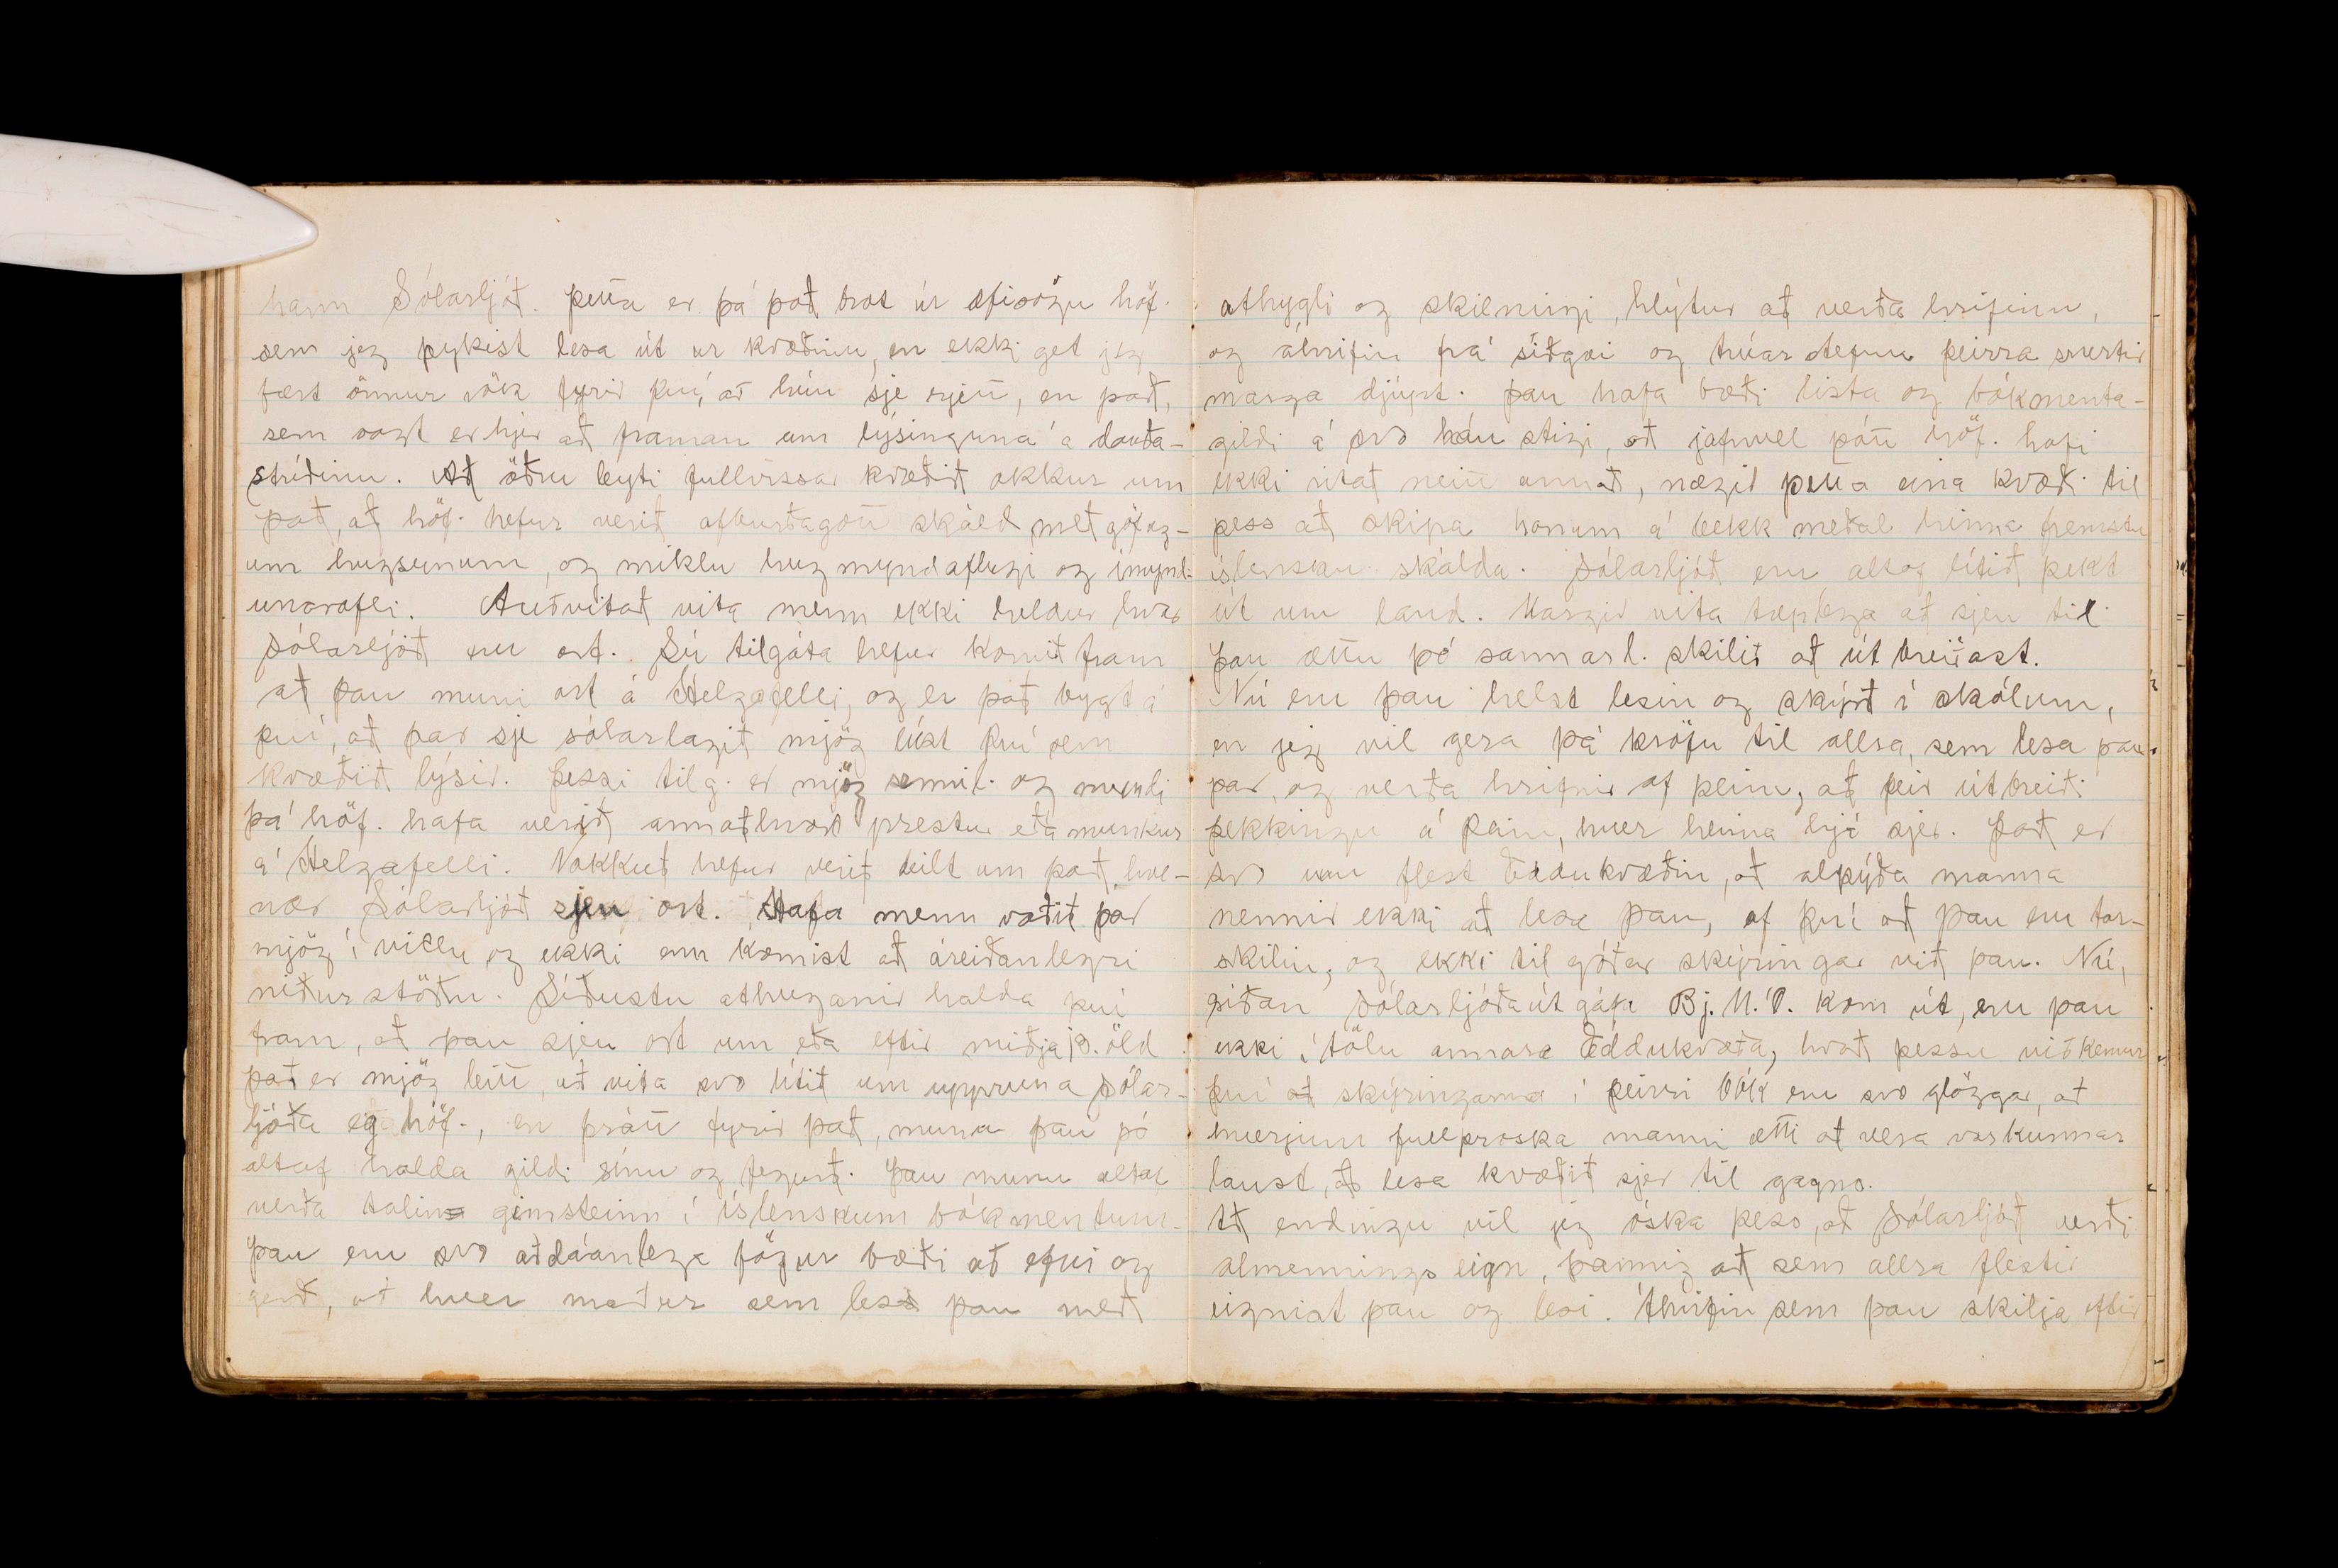 hann Sólarljóð. Þetta er þá það brot úr æfisögu höf.
sem jeg þykist lesa út úr kvæðinu, en ekki get jeg
fært önnur rök fyrir því, að hún sje rjett, en það,
sem sagt er hjer að framan um lýsinguna á dauða-
stríðinu. Að öðru leyti fullvissar kvæðið okkur um
það, að höf. hefur verið afburðagott skáld með göfug-
um hugsunum, og miklu hugmyndaflugi og ímynd-
unarafli. Auðvitað vita menn ekki heldur hvar
Sólarljóð eru ort. Sú tilgáta hefur komið fram
að þau muni ort á Helgafelli, og er það bygt á
því, að þar sje sólarlagið mjög líkt því sem
kvæðið lýsir. Þessi tilg. er mjög sennil. og mundi
þá höf. hafa verið annaðhvort prestur eða munkur
á Helgafelli. Nokkuð hefur verið deilt um það, hve-
nær Sólarljóð sjeu ort. Hafa menn vaðið þar
mjög í villu og ekki enn komist að áreiðanlegri
niðurstöðu. Síðustu athuganir halda því
fram, að þau sjeu ort um eða eftir miðja 13. öld
það er mjög leitt, að vita svo lítið um uppruna Sólar-
ljóða og höf., en þrátt fyrir það, munu þau þó
altaf halda gildi sínu og fegurð. Þau munu altaf
verða talin gimsteinn í íslenskum bókmentum.
Þau eru svo aðdáanlega fögur bæði að efni og
gerð, að hver maður sem les þau með
athygli og skilningi, hlýtur að verða hrifinn,
og áhrifin frá siðgæi og trúar stefnu þeirra snertir
marga djúpt. Þau hafa bæði lista og bókmenta-
gildi á svo háu stigi, að jafnvel þótt höf. hafi
ekki ritað neitt annað, nægir þetta eina kvæði til
þess að skipa honum á bekk meðal hinna fremstu
íslensku skálda. Sólarljóð eru altof lítið þekt
út um land. Margir vita tæplega að sjeu til
þau ættu þó sannarl. skilið að útbreiðast.
Nú eru þau helst lesin og skýrð í skólum,
en jeg vil gera þá kröfu til allra, sem lesa þau
þar, og verða hrifnir af þeim, að þeir útbreiði
þekkingu á þeim, hver heima hjá sjer. Það er
svo um flest Eddukvæðin, að alþýða manna
nennir ekki að lesa þau, af því að þau eru tor-
skilin, og ekki til góðar skýringar við þau. Nú,
síðan Sólarljóðaútgáfa Bj. M. Ó. kom út, eru þau
ekki í tölu annara Eddukvæða, hvað þessu viðkemur
því að skýringarna í þeirri bók eru svo glöggar, að
hverjum fullþroska manni ætti að vera vorkunnar
laust, að lesa kvæðið sjer til gagns.
Að endingu vil jeg óska þess, að Sólarljóð verði
almennings eign, þannig að sem allra flestir
eignist þau og lesi. Áhrifin sem þau skilja eftir